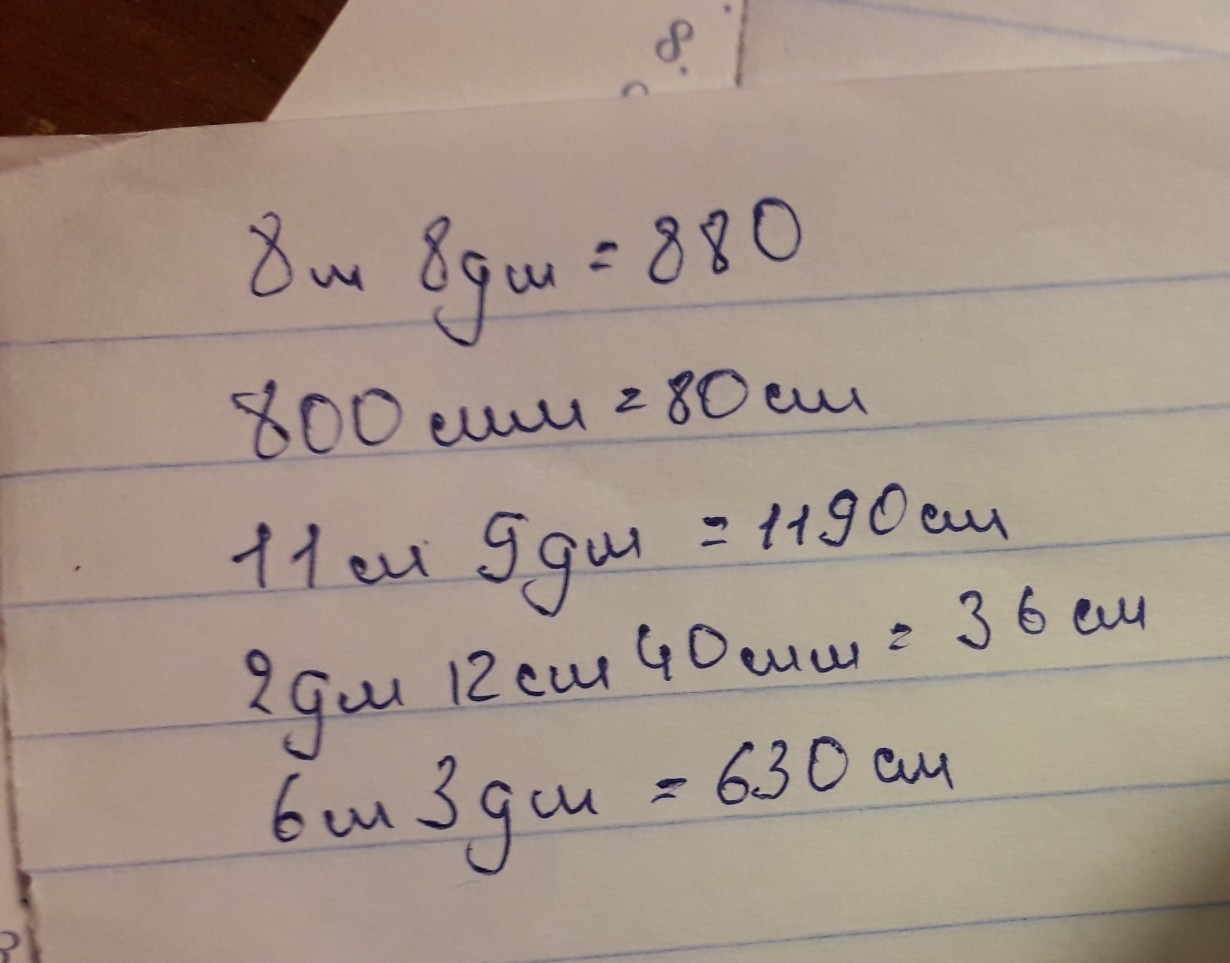 8.
8м 8дм = 880
800 мм = 80 см
11 см 9дм = 1190 см
2дм 12 см 40 мм = 36 см
6м 3дм = 630 см